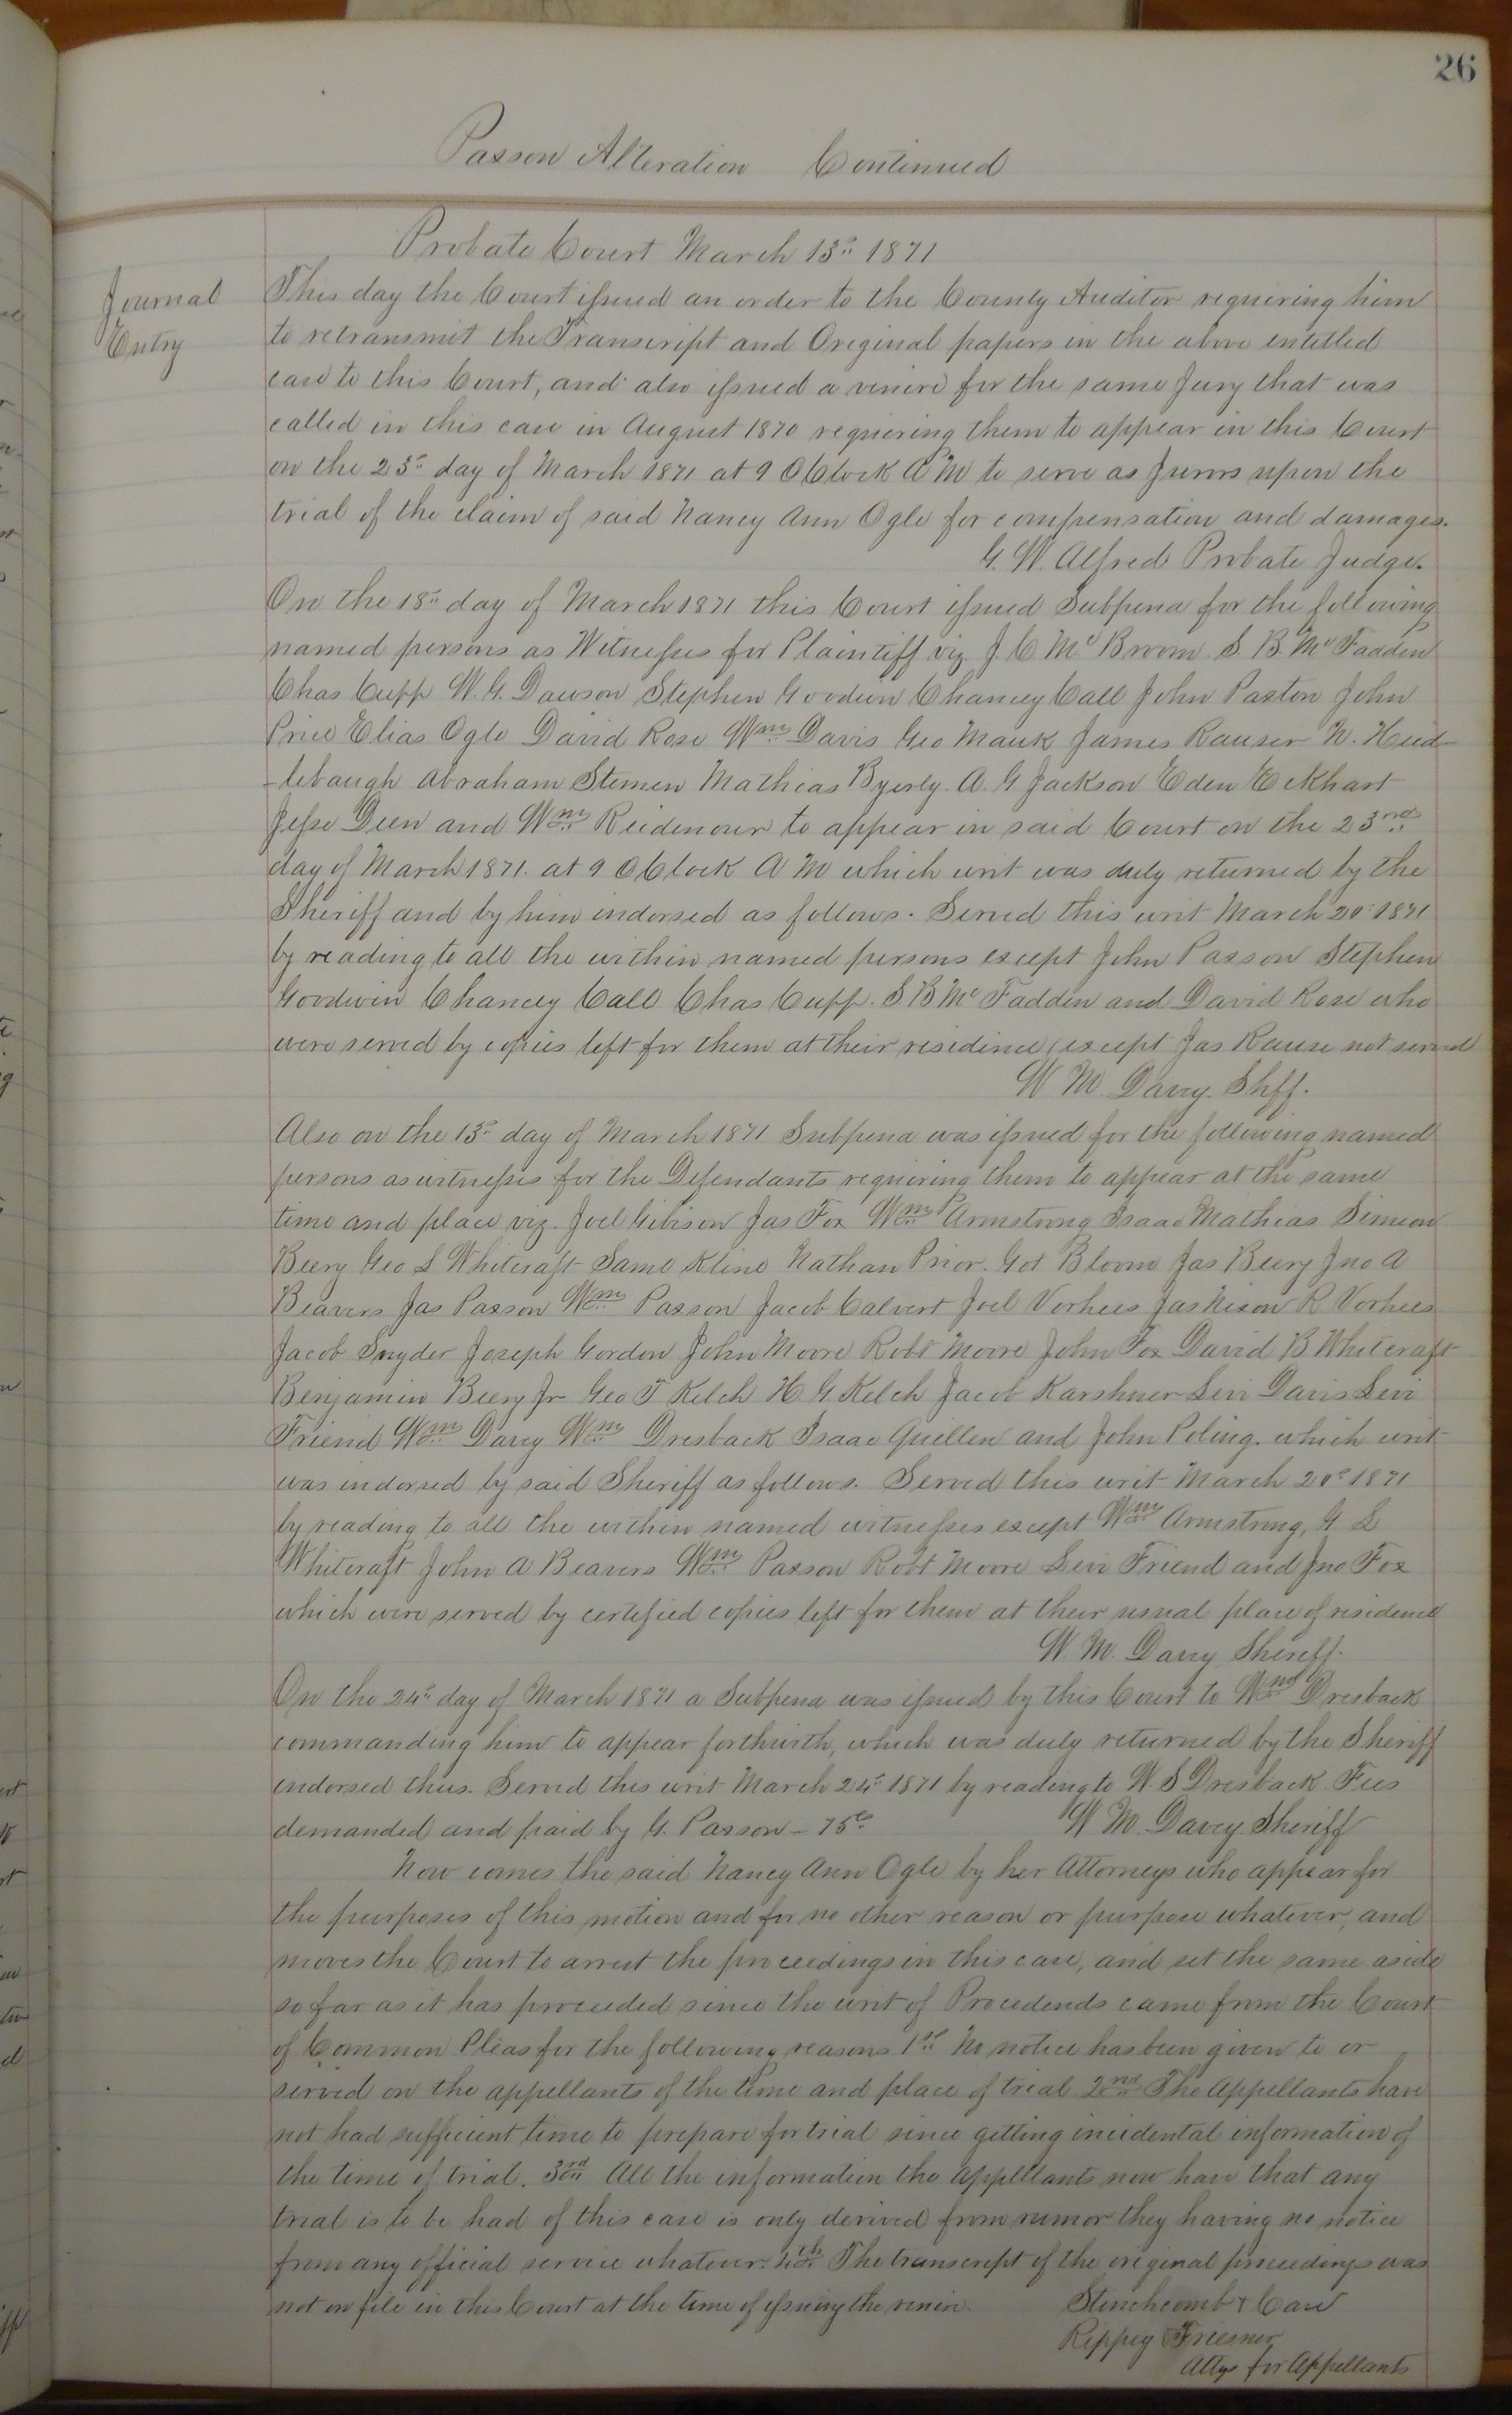 26
Paxson Alteration Continued
Probate Court March 13th 1871
Journal
Entry
This day the Court issued an order to the County Auditor requiring him
to retransmit the Transcript and Original papers in the above entitled
case to this Court, and also issued a venire for the same Jury that was
called in this case in August 1870 requiring them to appear in this Court
on the 23d day of March 1871 at 9 OClock A M to serve as Jurors upon the
trial of the claim of said Nancy Ann Ogle for compensation and damages.
G. W. Alfred Probate Judge.
On the 18th day of March 1871 this Court issued Subpena for the following
named persons as Witnesses for Plaintiff viz J. C. Mc Broom S. B. Mc Fadden
Chas Cupp W. G. Dawson Stephen Goodwin Chancey Call John Paxton John
Price Elias Ogle David Rose Wm Davis Geo Mauk James Rauser N. Heid-
-lebaugh Abraham Stemen Mathias Byerly. A. G Jackson Eden Eckhart
Jesse Deen and Wm Reidenour to appear in said Court on the 23nd
day of March 1871. at 9 OClock A M which writ was duly returned by the
Sheriff and by him indorsed as follows. Served this writ March 20 1871
by reading to all the within named persons except John Paxson Stephen
Goodwin Chancey Call Chas Cupp. S. B Mc Fadden and David Rose who
were served by copies left for them at their residence (except Jas Rause not served
W M. Davy. Shff.
Also on the 13th day of March 1871 Subpena was issued for the following named
persons as witnesses for the Defendants requiring them to appear at the same
time and place viz. Joel Gibison Jas Fox Wm Armstrong Isaac Mathias Simeon
Beery Geo S Whitcraft Saml Kline Nathan Prior. Got Bloom Jas Beery Jno A
Beavers Jas Paxson Wm Paxson Jacob Calvert Joel Vorhees Jas Nixon R Vorhees
Jacob Snyder Joseph Gordon John Moore Robt Moore John Fox David B Whitcraft
Benjamin Beery Jr Geo T Kelch H. G. Kelch Jacob Karshner Levi Davis Levi
Friend Wm Davy Wm Dresback Isaac Quillen and John Poling. which writ
was indorsed by said Sheriff as follows. Served this writ March 20th 1871
by reading to all the within named witnesses except Wm Armstrong, G. S
Whitcraft John A Beavers Wm Paxson Robt Moore Levi Friend and Jno Fox
which were served by certified copies left for them at their usual place of residence
W. M. Davy Sheriff.
On the 24th day of March 1871 a Subpena was issued by this Court to Wm Dresback
commanding him to appear forthwith, which was duly returned by the Sheriff
endorsed thus. Served this writ March 24th 1871 by reading to W. S Dresback. Fees
demanded and paid by G. Paxson – 75c W M. Davey. Sheriff
Now comes the said Nancy Ann Ogle by her Attorneys who appear for
the purposes of this motion and for no other reason or purpose whatever, and
moves the Court to arrest the proceedings in this case, and set the same aside
so far as it has proceeded since the writ of Procedendo came from the Court
of Common Pleas for the following reasons 1st No notice has been given to or
served on the appellants of the time and place of trial 2nd The Appellants have
not had sufficient time to prepare for trial since getting incidental information of
the time of trial. 3rd All the information the appellants now have that any
trial is to be had of this case is only derived from rumor they having no notice
from any official service whatever. 4th The transcript of the original proceedings was
not on file in this Court at the time of issuing the venire. Stinchcomb & Care
Rippey & Friesner
Attys for Appellants